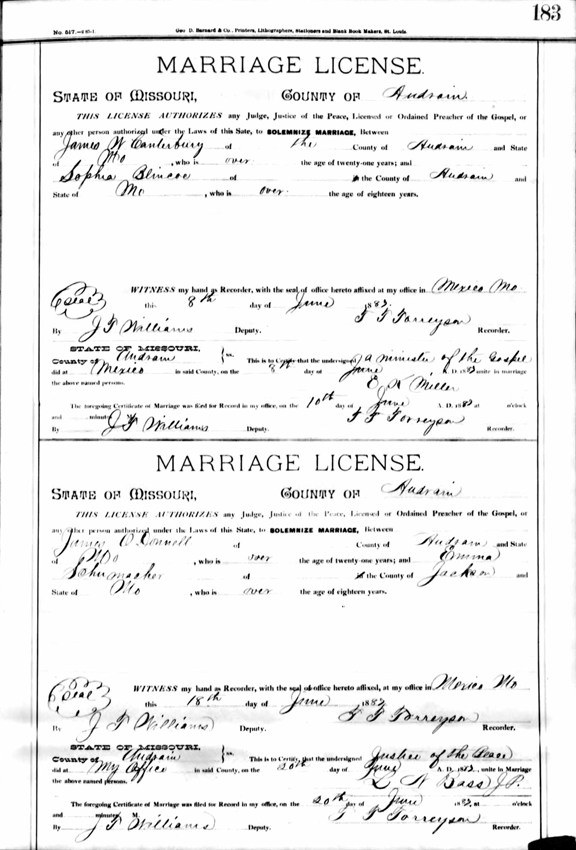 183
No. 517.
Geo D. Barnard & Co., Printers, Lithographers, Stationers and Blank Book Makers, St. Louis.
MARRIAGE LICENSE.
STATE OF MISSOURI, COUNTY OF Audrain
THIS LICENSE AUTHORIZES any Judge, Justice of the Peace, Licensed or Ordained Preacher of the Gospel, or
any other person authorized under the Laws of this Sate, to SOLEMNIZE MARRIAGE, Between
James W Canterbury of the County of Audrain and State
of Mo, who is over the age of twenty-one years; and
Sophia Blincoe of the County of Audrain and
State of Mo, who is over the age of eighteen years.
WITNESS my hand as Recorder, with the seal of office hereto affixed at my office in Mexico Mo
Seal this 8th day of June 1882
By J F Williams Deputy. F F Torreyson Recorder.
STATE OF MISSOURI,
County of Audrain ss. This is to Certify that the undersigned a minister of the Gospel
did at Mexico in said County, on the 8th day of June A. D. 1882 unite in marriage
the above named persons. Miller
The foregoing Certificate of Marriage was filed for Record in my office, on the 10th day of June A. D. 1882 at o'clock
and minutes M.
By J F Williams Deputy. F F Torreyson Recorder.
MARRIAGE LICENSE.
STATE OF MISSOURI, COUNTY OF Audrain
THIS LICENSE AUTHORIZES any Judge, Justice of the Peace, Licensed or Ordained Preacher of the Gospel, or
any other person authorized under the Laws of this State, to SOLEMNIZE MARRIAGE, Between
James O'Connell of County of Audrain and State
of Mo, who is over the age of twenty-one years; and Emma
Schumacher of the County of Jackson and
State of Mo, who is over the age of eighteen years.
WITNESS my hand as Recorder, with the seal of office hereto affixed, at my office in Mexico Mo
Seal this 18th day of June 1882
By J F Williams Deputy. F F Torreyson Recorder.
STATE OF MISSOURI,
County of Audrain ss. This is to Certify, that the undersigned Justice of the Peace
did at My Office in said County, on the 20th day of June A. D. 1882, unite in Marriage
the above named persons. Bass J.P.
The foregoing Certificate of Marriage was filed for Record in my office, on the 20th day of June A. D. 1882 at o'clock
and minutes M.
By J F Williams Deputy. F F Torreyson Recorder.